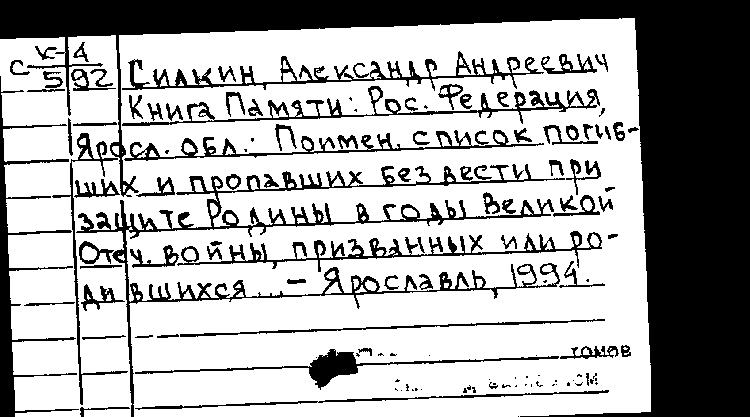 К-4
С 592
Силкин, Александр Андреевич
Книга Памяти: Рос. Федерация,
Яросл. обл.: Поимен. список погиб-
ших и пропавших без вести при
защите Родины в годы Великой
Отеч. войны, призванных или ро-
дившихся...— Ярославль, 1994.
томов